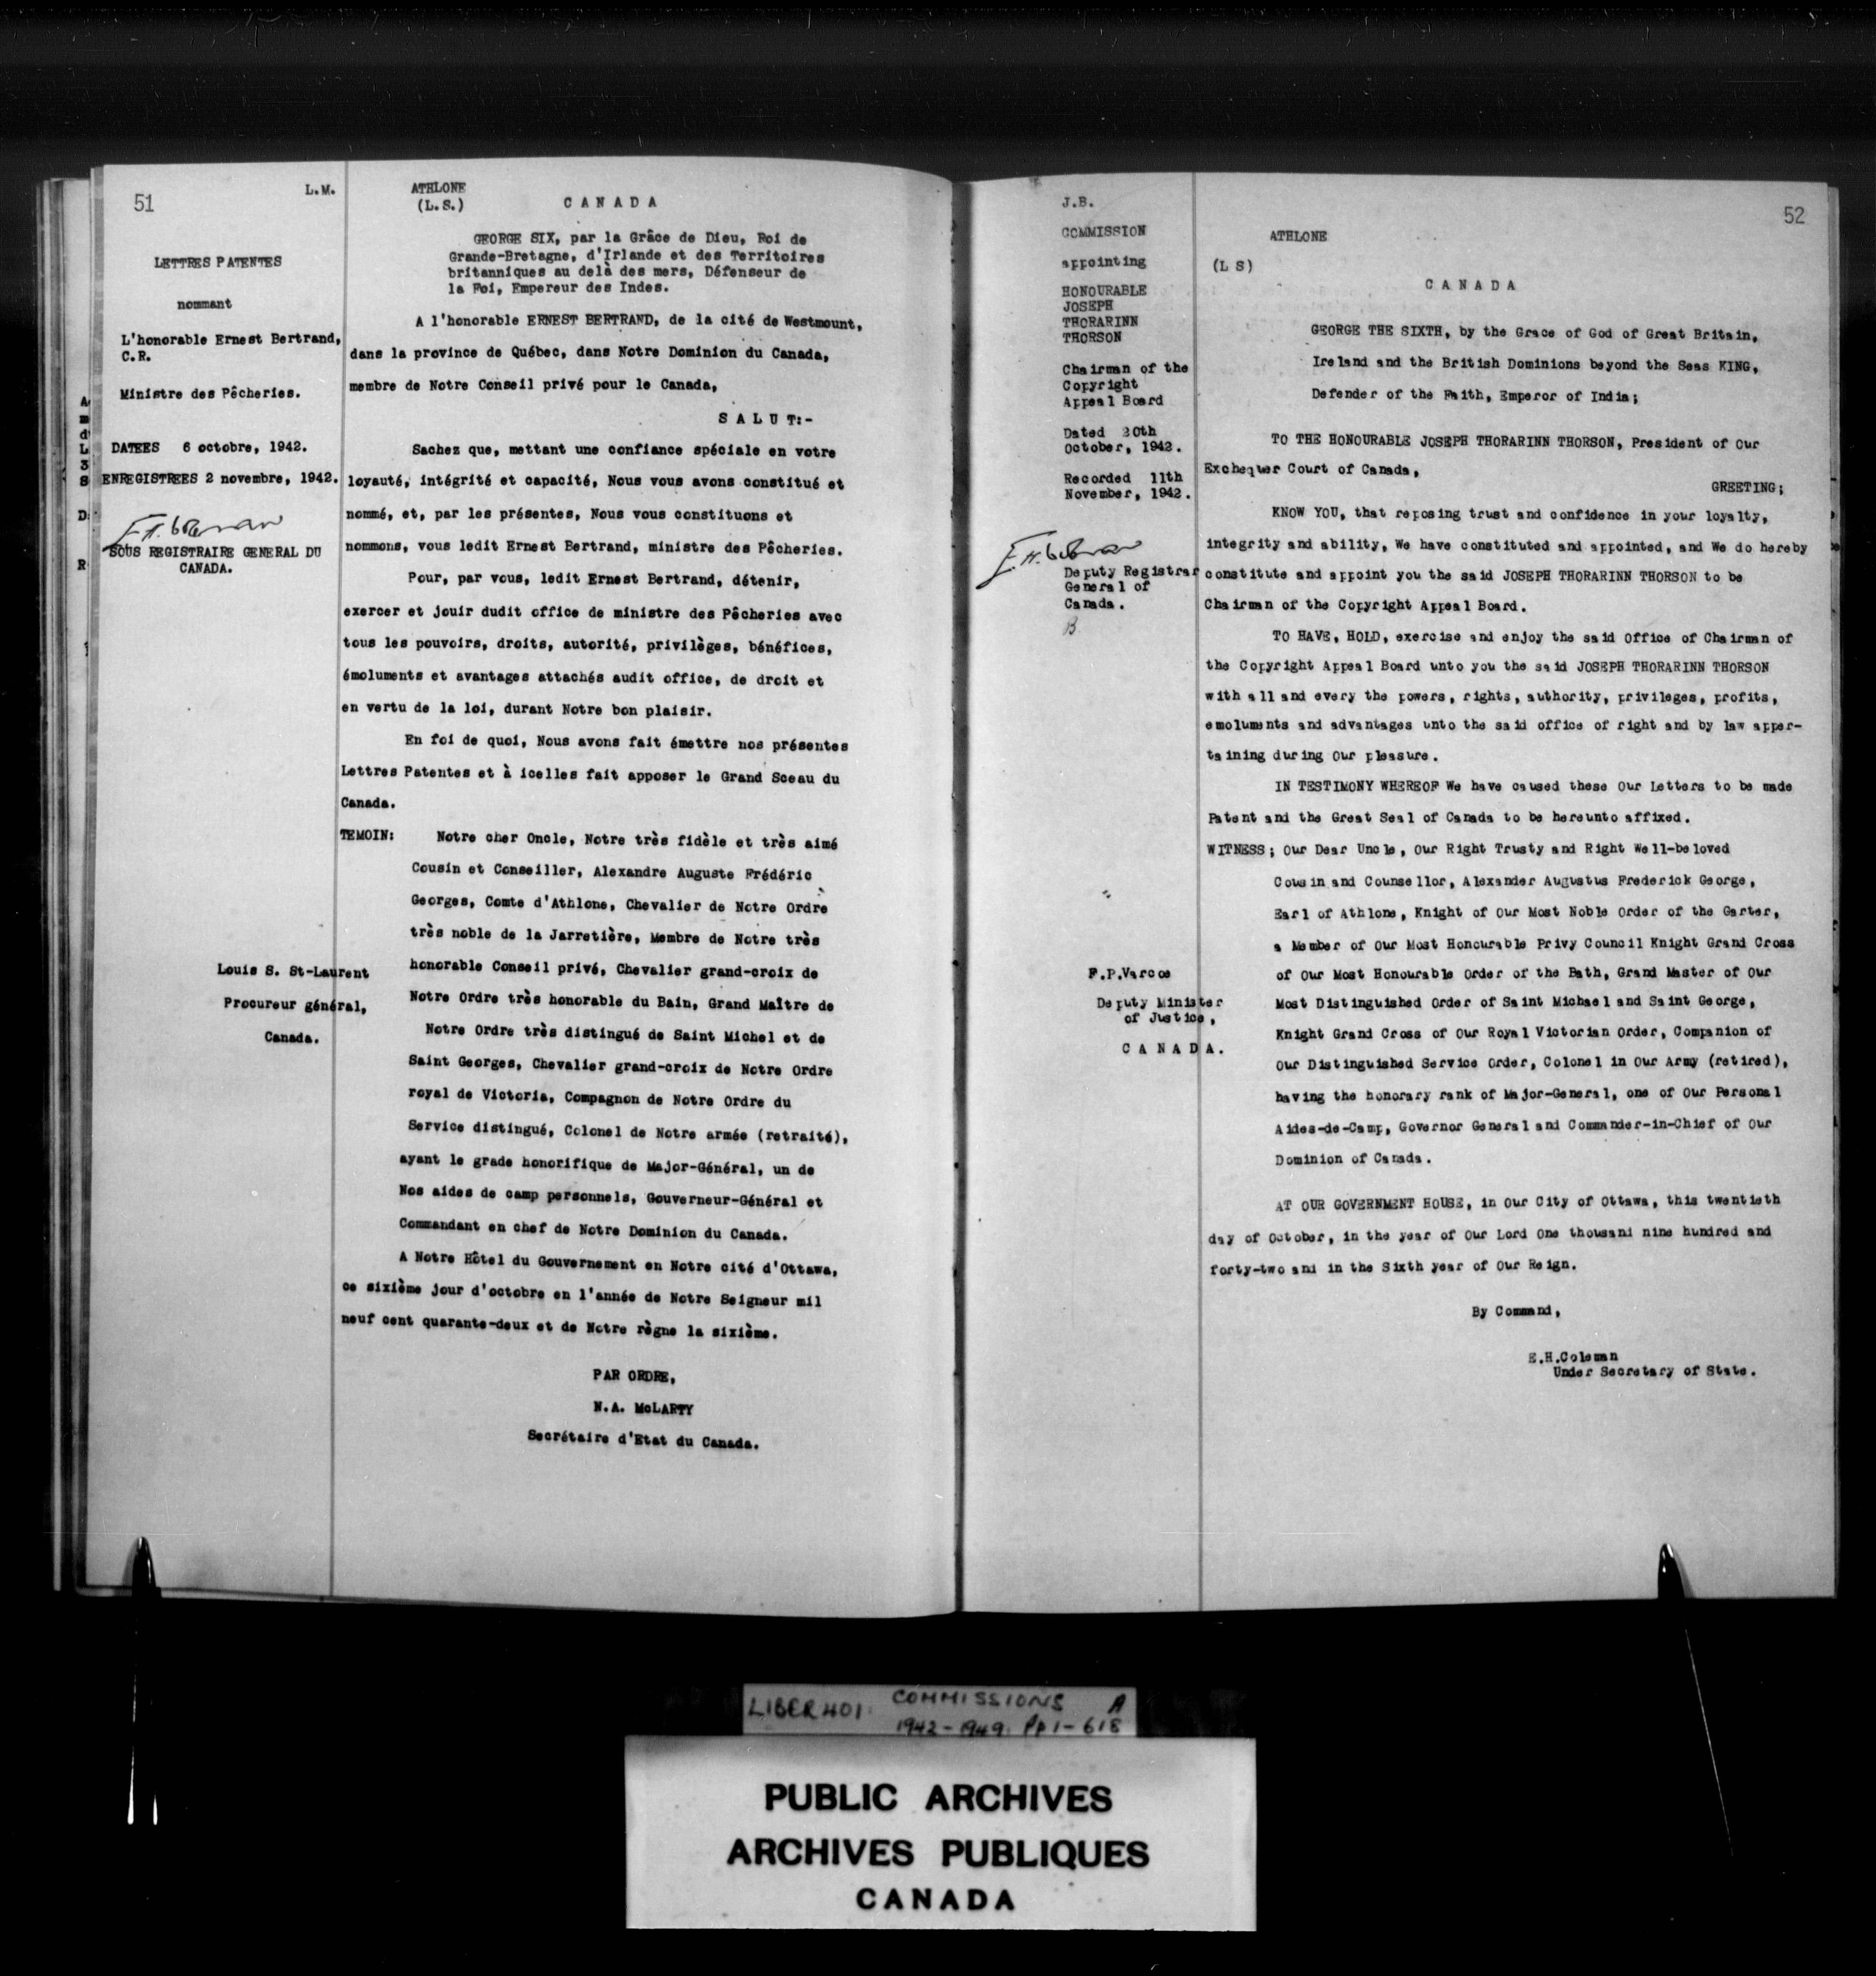 51
L.M.
LETTRES PATENTES
nommant
L'honorable Ernest Bertrand,
C.R.
Ministre des Pêcheries.
DATEES 6 octobre, 1942.
ENREGISTREES 2 novembre, 1942.
SOUS REGISTRAIRE GENERAL DU
CANADA.
Louis S. St-Laurent
Procureur général,
Canada.
ATHLONE
(L.S.)
C A N A D A
GEORGE SIX, par la Grâce de Dieu, Roi de
Grande-Bretagne, d'Irlande et des Territoires
britanniques au delà des mers, Défenseur de
la Foi, Empereur des Indes.
A l'honorable ERNEST BERTRAND, de la cité de Westmount,
dans la province de Québec, dans Notre Dominion du Canada,
membre de Notre Conseil privé pour le Canada,
S A L U T:-
Sachez que, mettant une confiance spéciale en votre
loyauté, intégrité et capacité, Nous vous avons constitué et
nommé, et, par les présentes, Nous vous constituons et
nommons, vous ledit Ernest Bertrand, ministre des Pêcheries.
Pour, par vous, ledit Ernest Bertrand, détenir,
exercer et jouir dudit office de ministre des Pêcheries avec
tous les pouvoirs, droits, autorité, privilèges, bénéfices,
émoluments et avantages attachés audit office, de droit et
en vertu de la loi, durant Notre bon plaisir.
En foi de quoi, Nous avons fait émettre nos présentes
Lettres Patentes et à icelles fait apposer le Grand Sceau du
Canada.
TEMOIN: Notre cher Oncle, Notre très fidèle et très aimé
Cousin et Conseiller, Alexandre Auguste Frédéric
Georges, Comte d'Athlone, Chevalier de Notre Ordre
très noble de la Jarretière, Membre de Notre très
honorable Conseil privé, Chevalier grand-croix de
Notre Ordre très honorable du Bain, Grand Maître de
Notre Ordre très distingué de Saint Michel et de
Saint Georges, Chevalier grand-croix de Notre Ordre
royal de Victoria, Compagnon de Notre Ordre du
Service distingué, Colonel de Notre armée (retraité),
ayant le grade honorifique de Major-Général, un de
Nos aides de camp personnels, Gouverneur-Général et
Commandant en chef de Notre Dominion du Canada.
A Notre Hôtel du Gouvernement en Notre cité d'Ottawa,
ce sixième jour d'octobre en l'année de Notre Seigneur mil
neuf cent quarante-deux et de Notre règne la sixième.
PAR ORDRE,
N.A. McLARTY
Secrétaire d'Etat du Canada.
J.B.
COMMISSION
appointing
HONOURABLE
JOSEPH
THORARINN
THORSON
Chairman of the
Copyright
Appeal Board
Dated 20th
October, 1942.
Recorded 11th
November, 1942.
Deputy Registrar
General of
Canada.
B
F.P.Varcoe
Deputy Minister
of Justice,
C A N A D A.
52
ATHLONE
(L S)
C A N A D A
GEORGE THE SIXTH, by the Grace of God of Great Britain,
Ireland and the British Dominions beyond the Seas KING,
Defender of the Faith, Emperor of India;
TO THE HONOURABLE JOSEPH THORARINN THORSON, President of Our
Exchequer Court of Canada,
GREETING;
KNOW YOU, that reposing trust and confidence in your loyalty,
integrity and ability, We have constituted and appointed, and We do hereby
constitute and appoint you the said JOSEPH THORARINN THORSON to be
Chairman of the Copyright Appeal Board.
TO HAVE, HOLD, exercise and enjoy the said Office of Chairman of
the Copyright Appeal Board unto you the said JOSEPH THORARINN THORSON
with all and every the powers, rights, authority, privileges, profits,
emoluments and advantages unto the said office of right and by law apper-
taining during Our pleasure.
IN TESTIMONY WHEREOF We have caused these Our Letters to be made
Patent and the Great Seal of Canada to be hereunto affixed.
WITNESS; Our Dear Uncle, Our Right Trusty and Right Well-beloved
Cousin and Counsellor, Alexander Augustus Frederick George,
Earl of Athlone, Knight of Our Most Noble Order of the Garter,
a Member of Our Most Honourable Privy Council Knight Grand Cross
of Our Most Honourable Order of the Bath, Grand Master of Our
Most Distinguished Order of Saint Michael and Saint George,
Knight Grand Cross of Our Royal Victorian Order, Companion of
Our Distinguished Service Order, Colonel in Our Army (retired),
having the honorary rank of Major-General, one of Our Personal
Aides-de-Camp, Governor General and Commander-in-Chief of Our
Dominion of Canada.
AT OUR GOVERNMENT HOUSE, in Our City of Ottawa, this twentieth
day of October, in the year of Our Lord One thousand nine hundred and
forty-two and in the Sixth year of Our Reign.
By Command,
E.H.Coleman
Under Secretary of State.
LIBER 401: COMMISSIONS A
1942-1949: Pp 1-618
PUBLIC ARCHIVES
ARCHIVES PUBLIQUES
CANADA